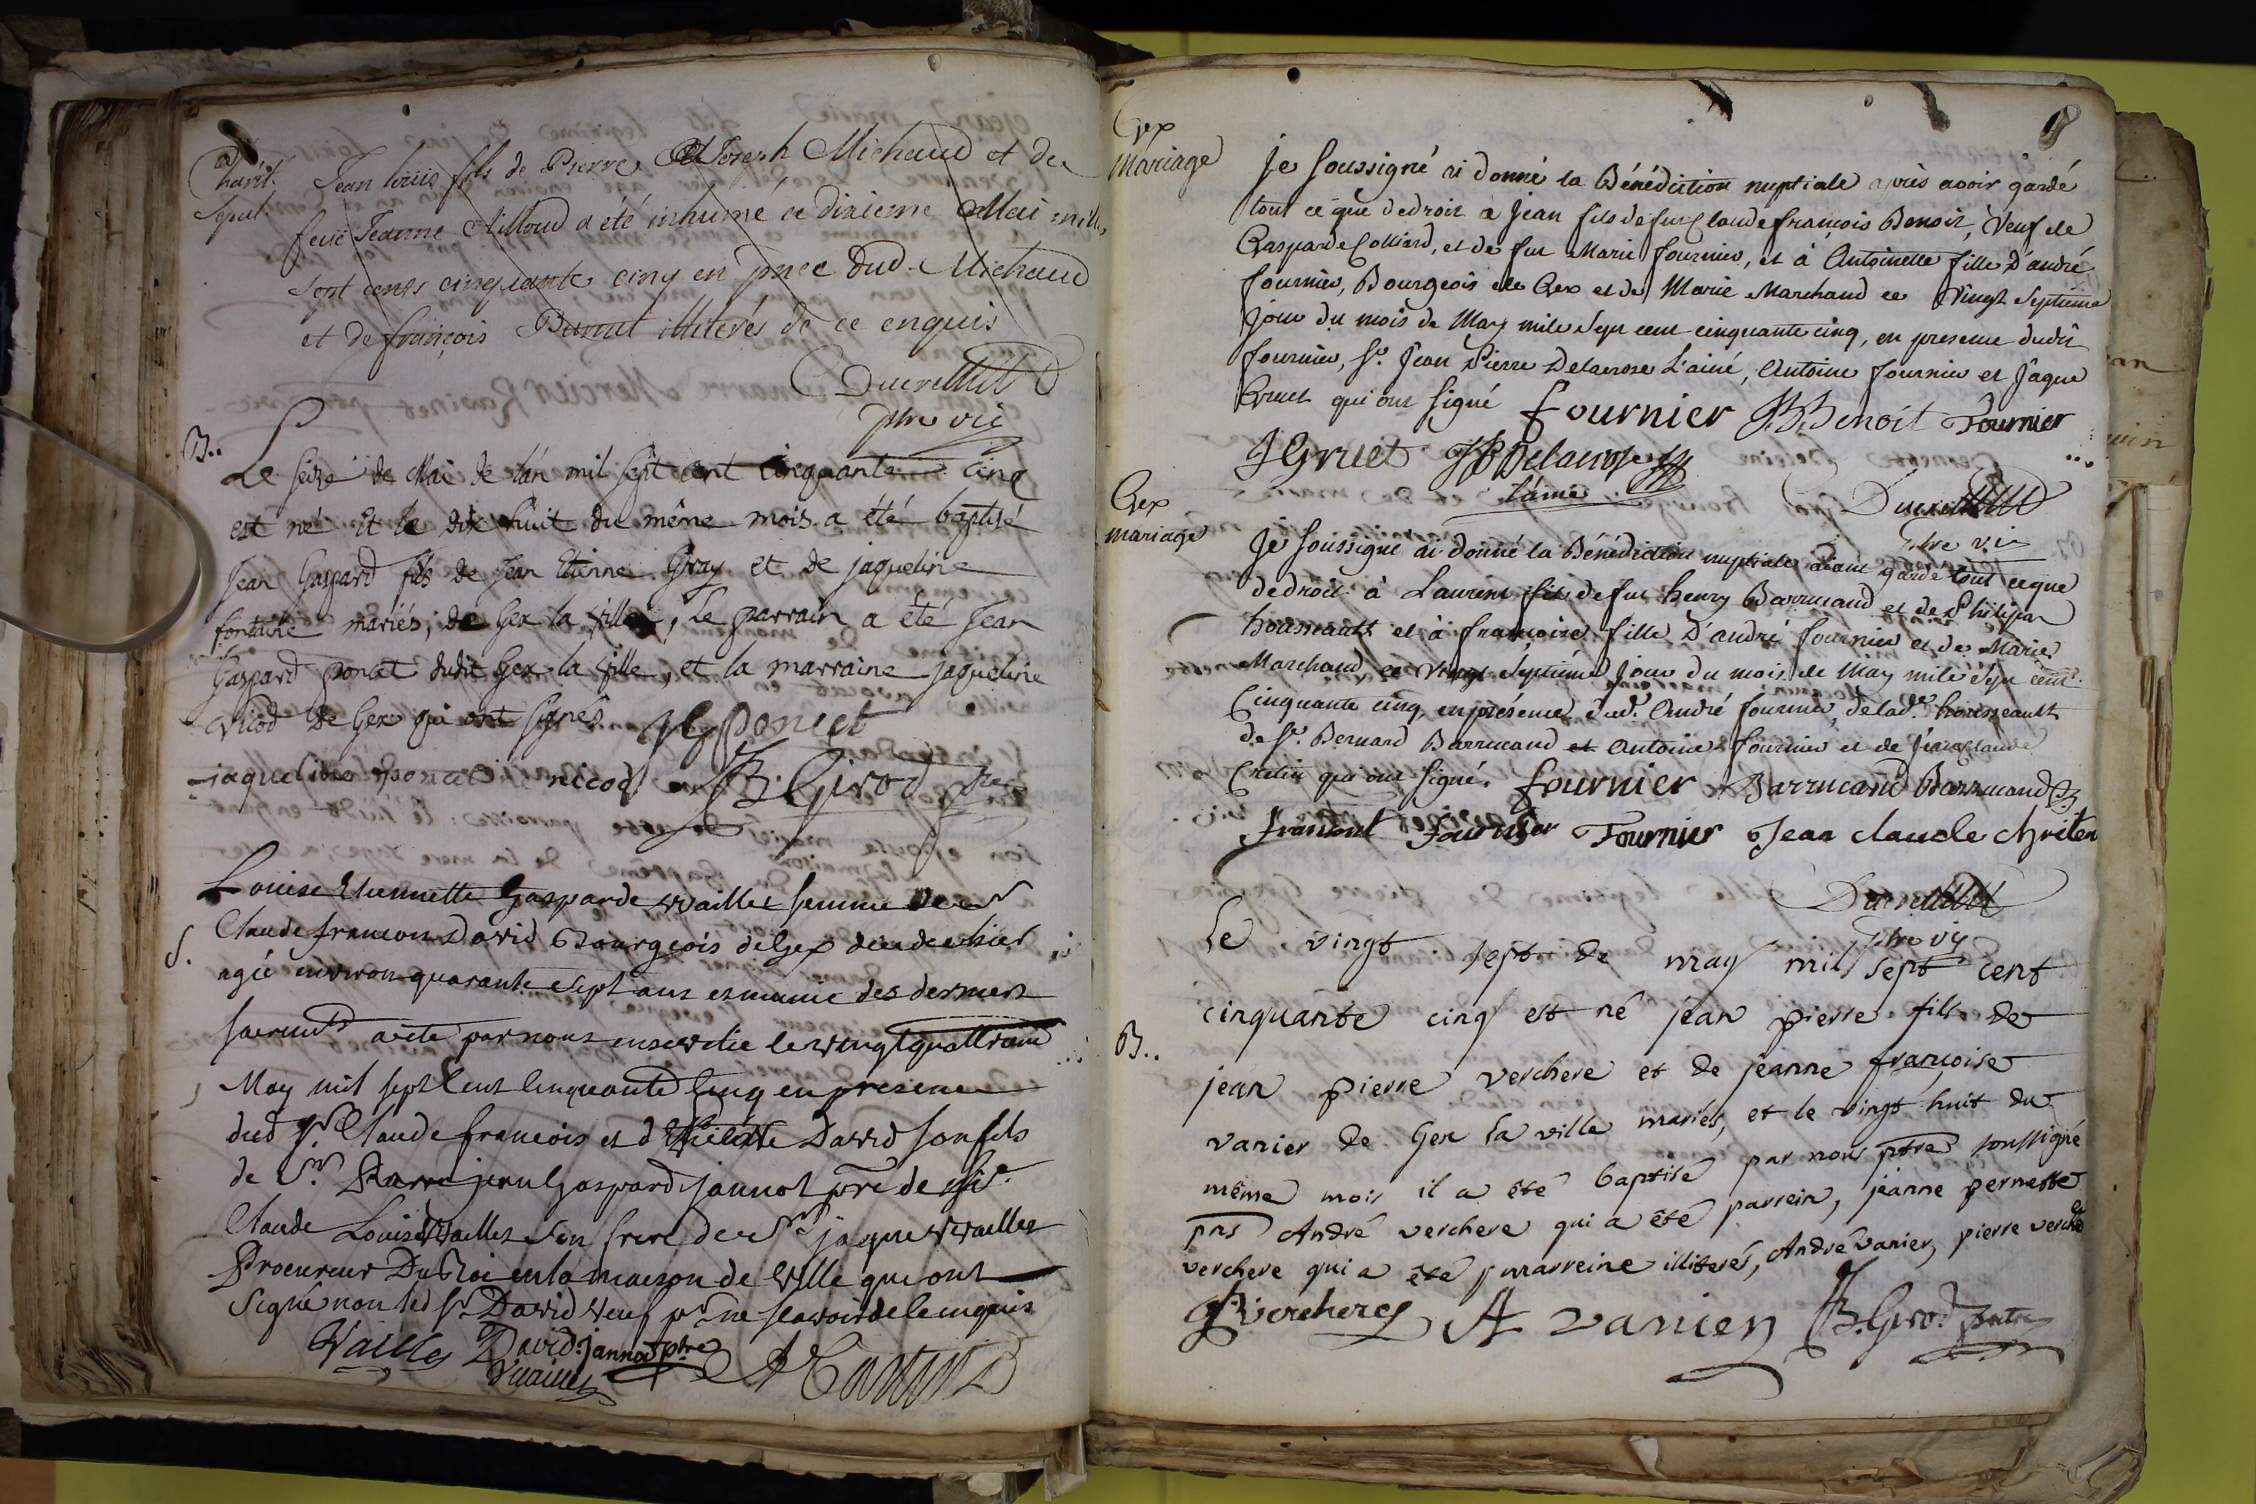 Sepul.
Jean louis fils de Pierre Joseph Michaud et de
feüe Jeanne Milloud a été inhumé ce dixieme Mai mille
sept cents cinquante cinq en pnce dud. Michaud
et de françois illiterés de ce enquis
Ducret
ptre vic
B..
Le seize de Mai de l'an mil sept cent cinquante cinq
est né et le dix huit du même mois a été baptisé
Jean Gaspard fils de Jean Etienne Gray et de jaqueline
fontaine mariés, de Gex la ville, Le parrain a été Jean
Gaspard poncet dudit Gex la ville, et la marraine jaqueline
nicod de Gex qui ont signés JG poncet
jaqueline poncet nicod JB. Girod ptre
Louise Etiennette Gasparde vuaillet femme de Sr
S.
Claude francois David Bourgeois de Gex decedee hier
agée environ quarante sept ans et munie des derniers
sacrements a eté par nous ensevelie le vingt quattrieme
May mil sept Cent Cinquante Cinq en presence
dud Sr. Claude francois et d' David son fils
de Sr. Pierre jean Gaspard jannot ptre de Sr.
Claude Louis Vuaillet son frere de Sr jaque Vuaillet
Procureur Du Roi en la maison de Ville qui ont
Signé non led Sr David veuf pr ne scavoir de ce enquis
Vaillet David jannot ptre
Vuaillet
Gex
Mariage
Je soussigné ai donné la Bénédiction nuptiale après avoir gardé
tout ce que dedroit a Jean fils de fut Claude françois Benoit, Veuf de
Gasparde Colliard, et de fut Marie fournier, et à Antoinette fille D'andré
fournier, Bourgeois de Gex et de Marie Marchand ce Vingt Septieme
Jour du mois de May mile Sept cent cinquante cinq, en presence dudit
fournier, Sr. Jean Pierre Delacrose L'ainé, Antoine fournier et Jâque
Gruet qui ont Signé fournier Benoit Fournier
J Gruet JP Delacrose
l'ainé
Ducret
ptre vic
Gex
mariage
Je soussigne ai donné la Bénédiction nuptiale aiant gardé tout ceque
dedroit à Laurent fils de fut henry Barrucand et de Philipa
housseault et à françoise fille D'andré fournier et de Marie
Marchand, ce Vingt Septieme Jour du mois de May mile Sept cent
Cinquante cinq, en présence dud. André fournier, de lade. housseault
de Sr. Bernard Barrucand et Antoine fournier et de Jean Claude
Cretin qui ont Signé. fournier Barrucand Barrucand
fournier Fournier Jean claude chriten
Ducret
ptre vic
Le vingt sept de may mil sept cent
cinquante cinq est né jean pierre fils de
B..
jean pierre verchere et de jeanne françoise
vanier de Gex la ville mariés, et le vingt huit du
même mois il a été baptisé par nous ptre soussigné
pns André verchere qui a été parrein, jeanne pernette
verchere qui a été marreine illiterés, André vanier, pierre verchere
P verchere A vanier JB. Girod ptre